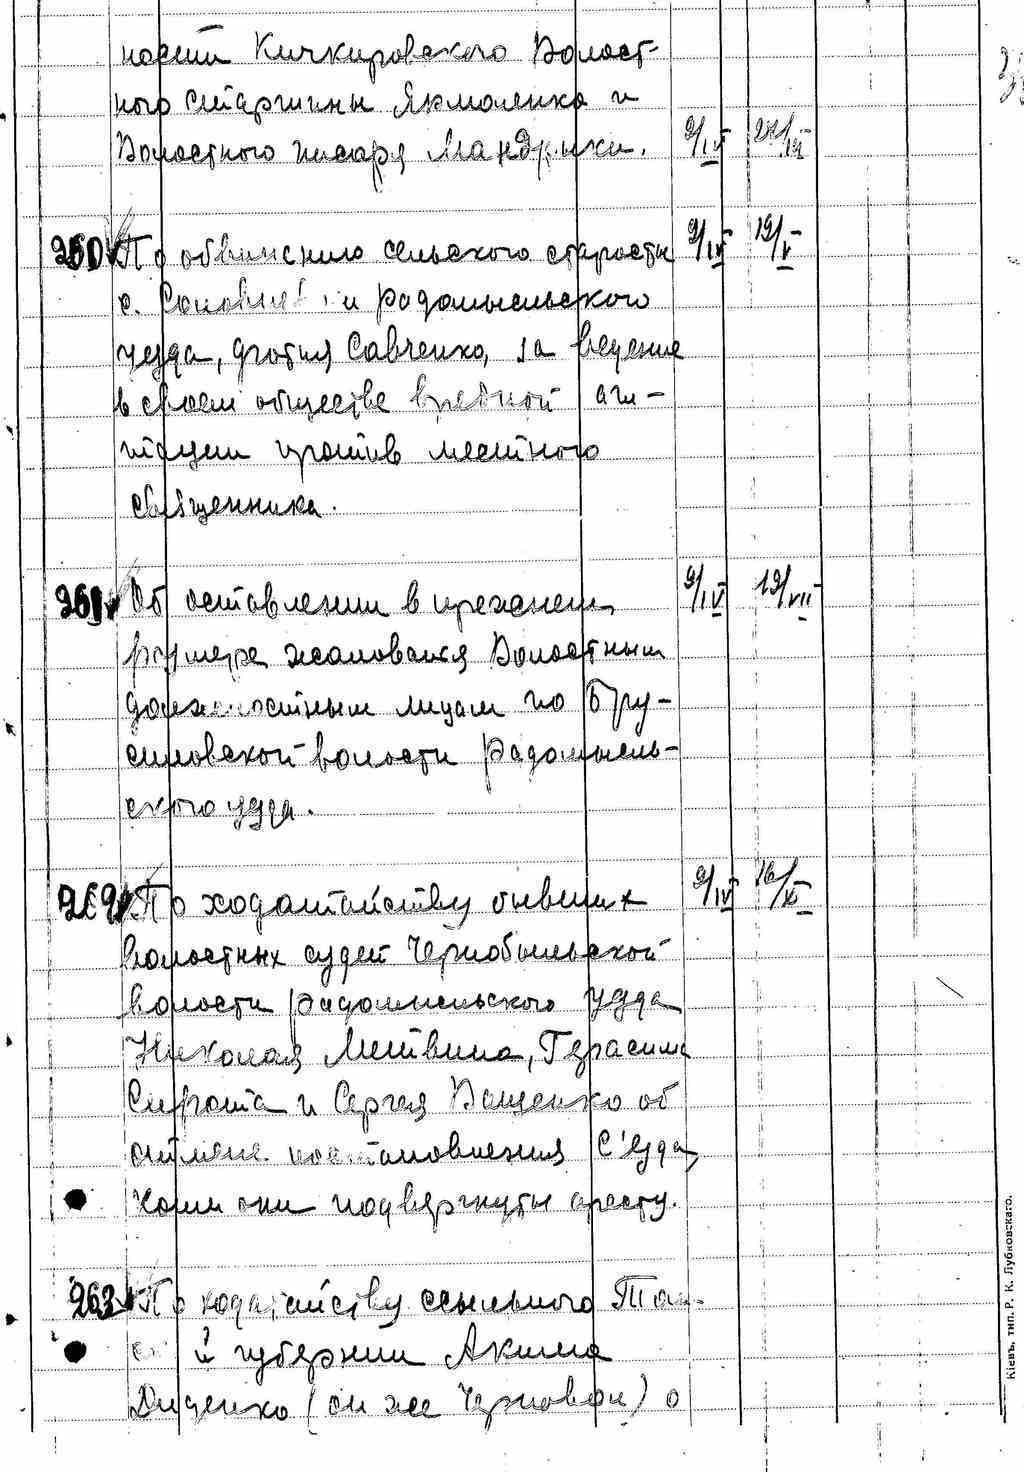 ностей Кичкировского Волост-
ного старшины Якмоленко и
Волостного писаря Мандрыки. 9/IV 24/
260 По обвинению сельского старосты 9/IV 19/V
с. и Радомысльского
уезда, Савченко, за ведение
в своем обществе вредной аги-
тации против местного
священника.
261 Об оставлении в прежнем 9/IV 19/VII
размере жалованья Волостным
должностным лицам по Бру-
силовской волости Радомысль-
ского уезда.
262 По ходатайству бывших 9/IV 16/XI
волостных судей Чернобыльской
волости Радомысльского уезда
Николая Литвина, Герасима
Сирота и Сергея Ващенко об
отмене постановления С'езда,
коим они подвергнуты аресту.
263 По ходатайству ссыльного Том-
ской губернии Акима
Диденко (он же Черновол) о
Кіевъ, тип. Р. К. Лубковскаго.